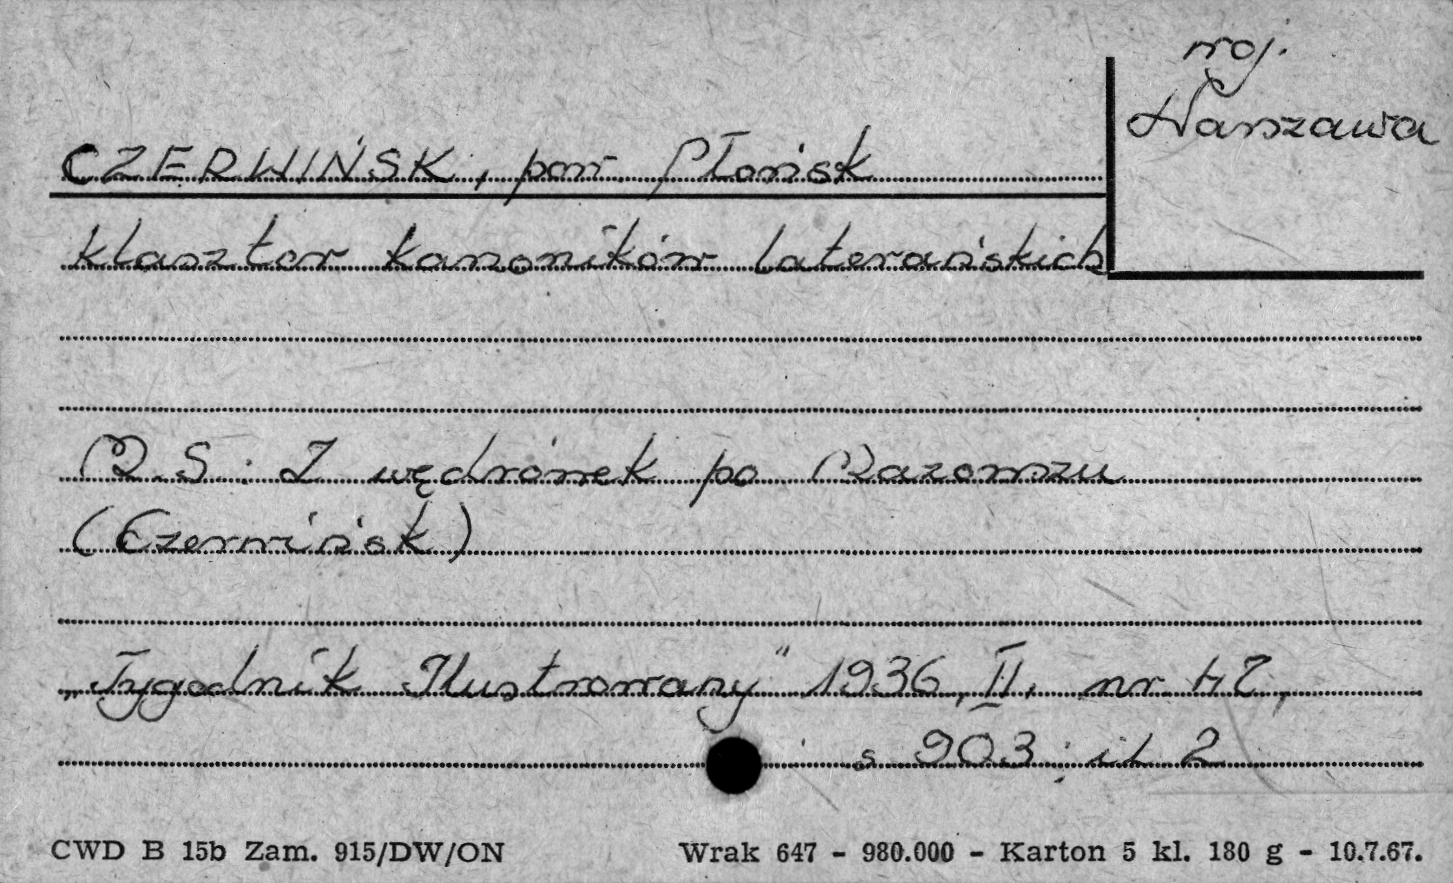 woj.
Warszawa
CZERWIŃSK, pow. Płońsk
klasztor kanoników laterańskich
M.S.: Z wędrówek po Mazowszu
(Czerwińsk)
„Tygodnik Ilustrowany" 1936, II, nr 47,
s 903; il 2
CWD B 15b Zam. 915/DW/ON Wrak 647 - 980.000 - Karton 5 kl. 180 g - 10.7.67.